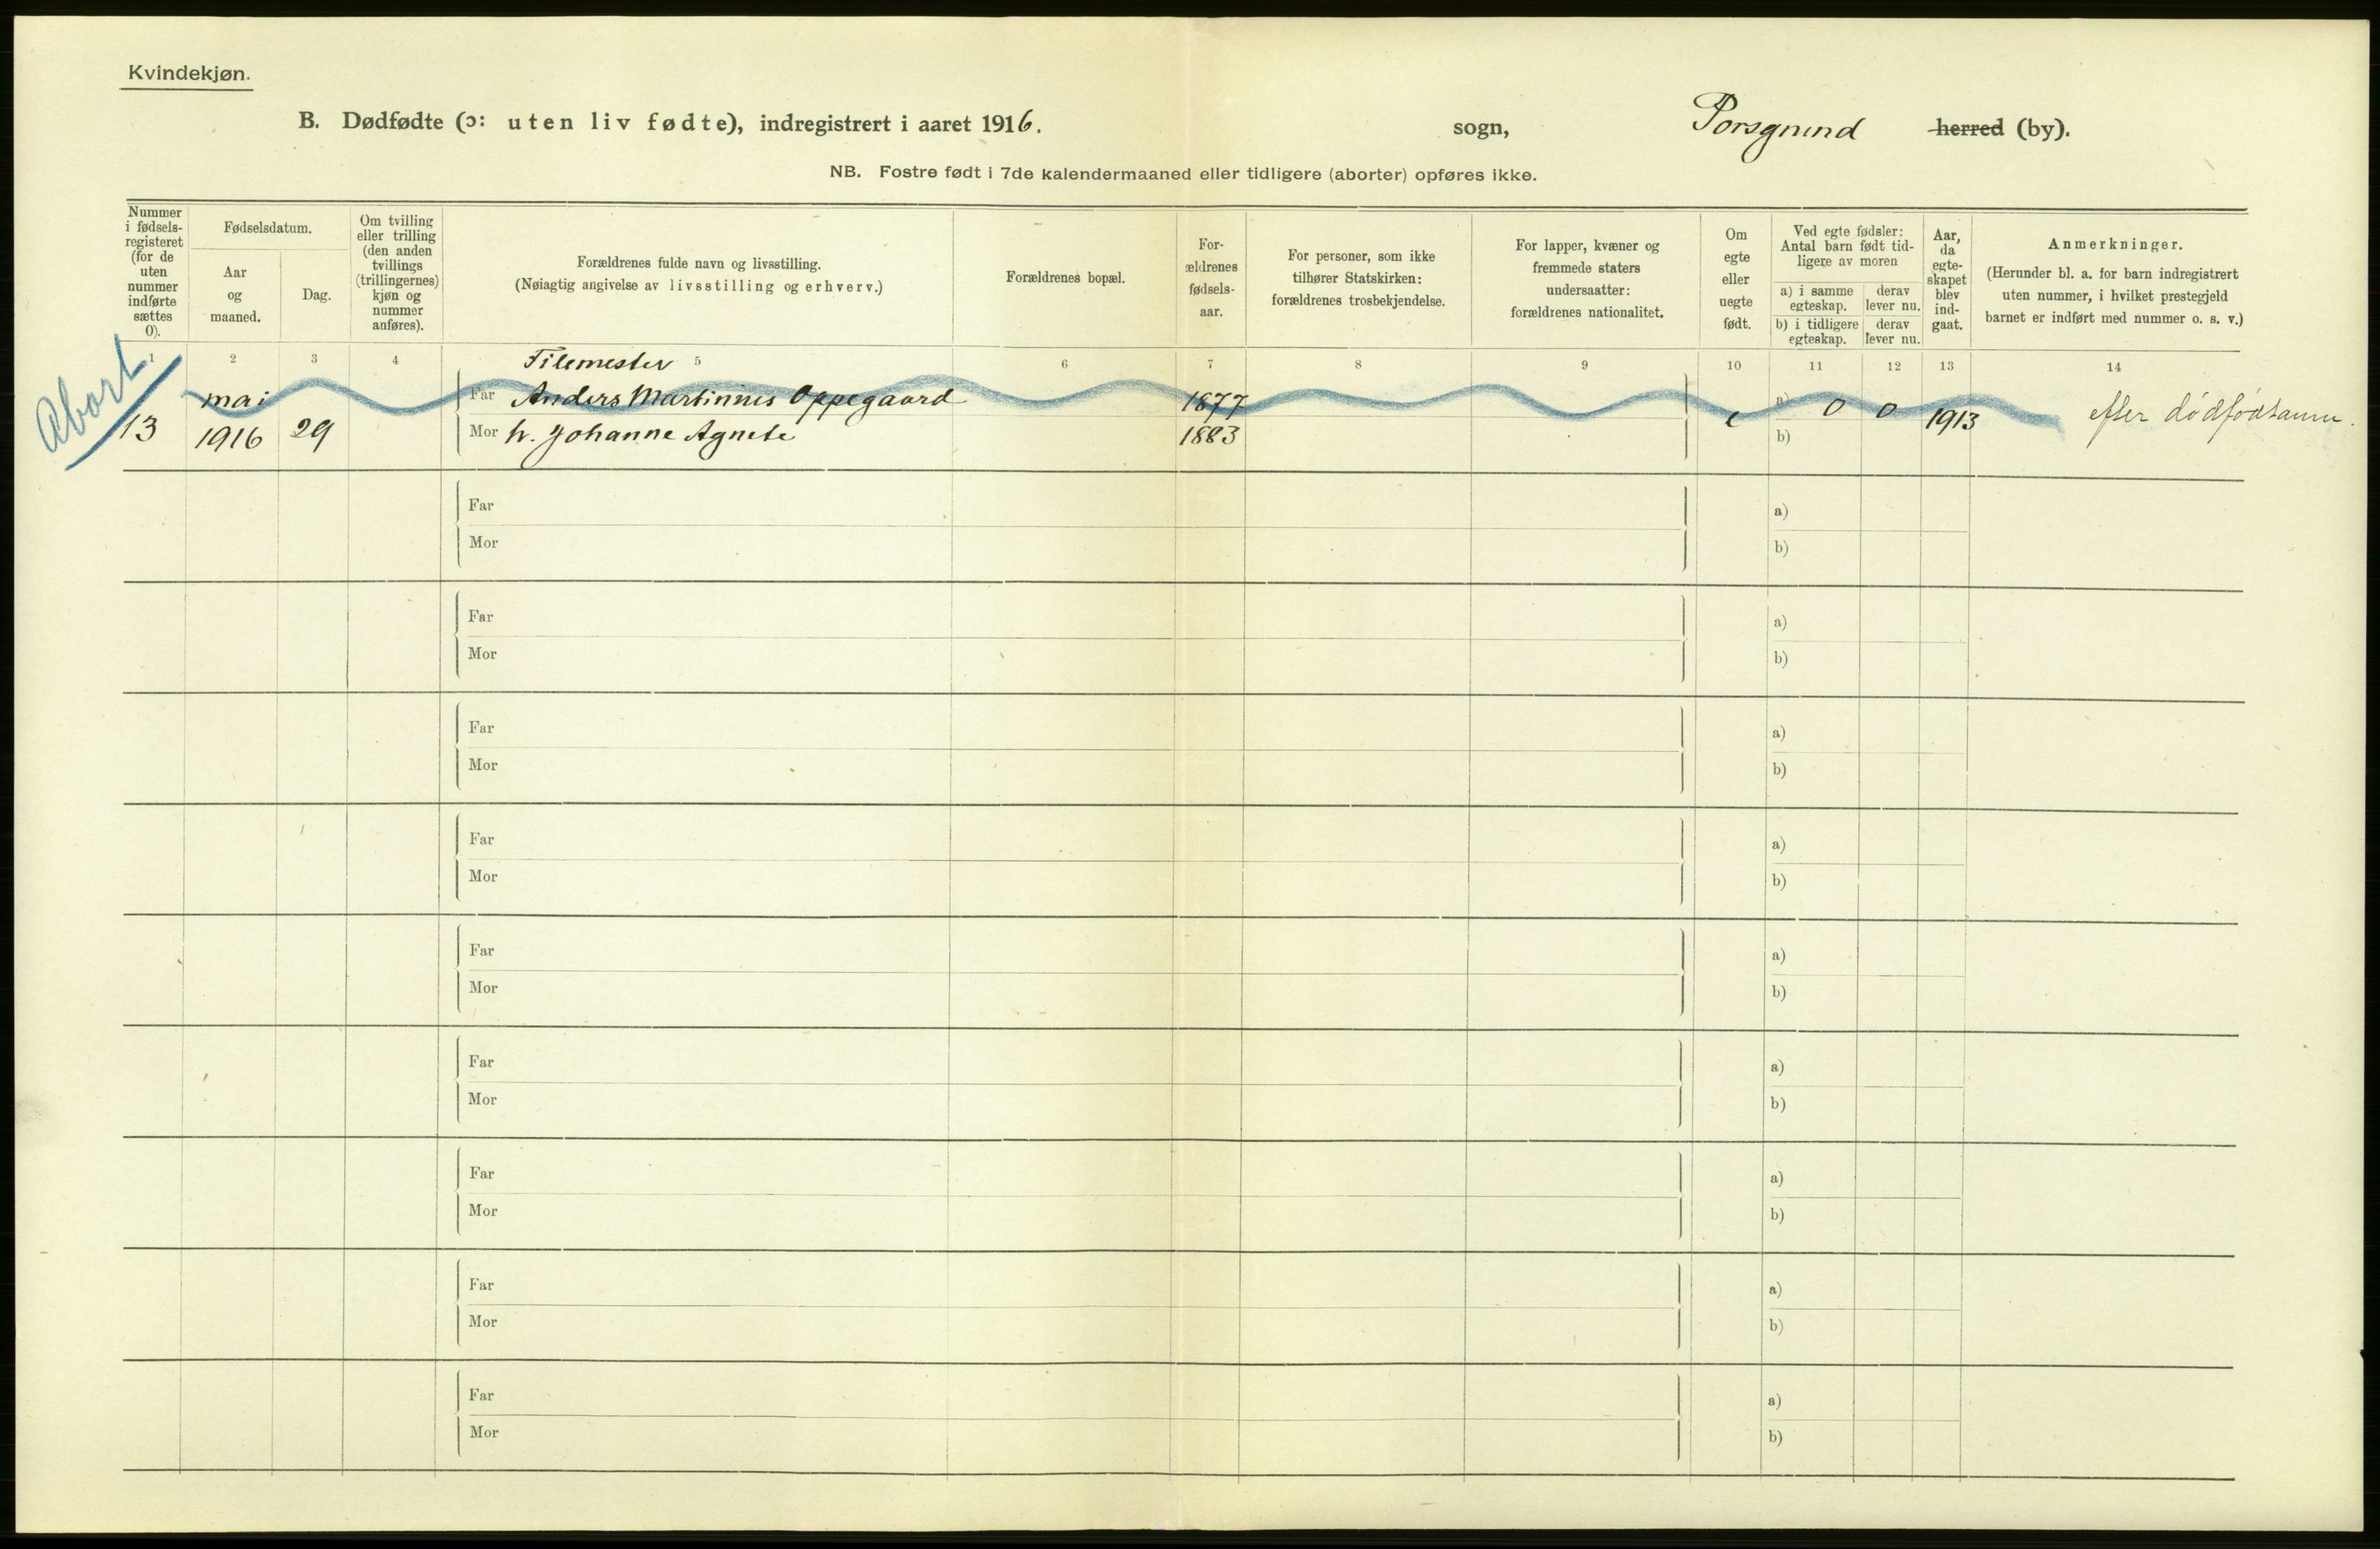 Kvindekjøn.
B. Dødfødte (ɔ: uten liv fødte), indregistrert i aaret 1916.
sogn, Porsgrund herred (by).
NB. Fostre født i 7de kalendermaaned eller tidligere (aborter) opføres ikke.
Nummer
i fødsels-
registeret
(for de
uten
nummer
indførte
sættes
0).
Fødselsdatum.
Aar
og
maaned.
Dag.
Om tvilling
eller trilling
(den anden
tvillings
(trillingernes)
kjøn og
nummer
anføres).
Forældrenes fulde navn og livsstilling.
(Nøiagtig angivelse av livsstilling og erhverv.)
Forældrenes bopæl.
For-
ældrenes
fødsels-
aar.
For personer, som ikke
tilhører Statskirken:
forældrenes trosbekjendelse.
For lapper, kvæner og
fremmede staters
undersaatter:
forældrenes nationalitet.
Om
egte
eller
uegte
født.
Ved egte fødsler:
Antal barn født tid-
ligere av moren
a) i samme
egteskap.
derav
lever nu.
b) i tidligere
egteskap.
derav
lever nu.
Aar,
da
egte-
skapet
blev
ind-
gaat.
Anmerkninger.
(Herunder bl. a. for barn indregistrert
uten nummer, i hvilket prestegjeld
barnet er indført med nummer o. s. v.)
1 2 3 4 5 6 7 8 9 10 11 12 13 14
Abort
Filemester
mai Far Anders Martinius Oppegaard 1877 a) 0 0
13 1916 29 Mor h. Johanne Agnete 1883 e b) 1913 efter dødfødtanm.
Far a)
Mor b)
Far a)
Mor b)
Far a)
Mor b)
Far a)
Mor b)
Far a)
Mor b)
Far a)
Mor b)
Far a)
Mor b)
Far a)
Mor b)
Far a)
Mor b)